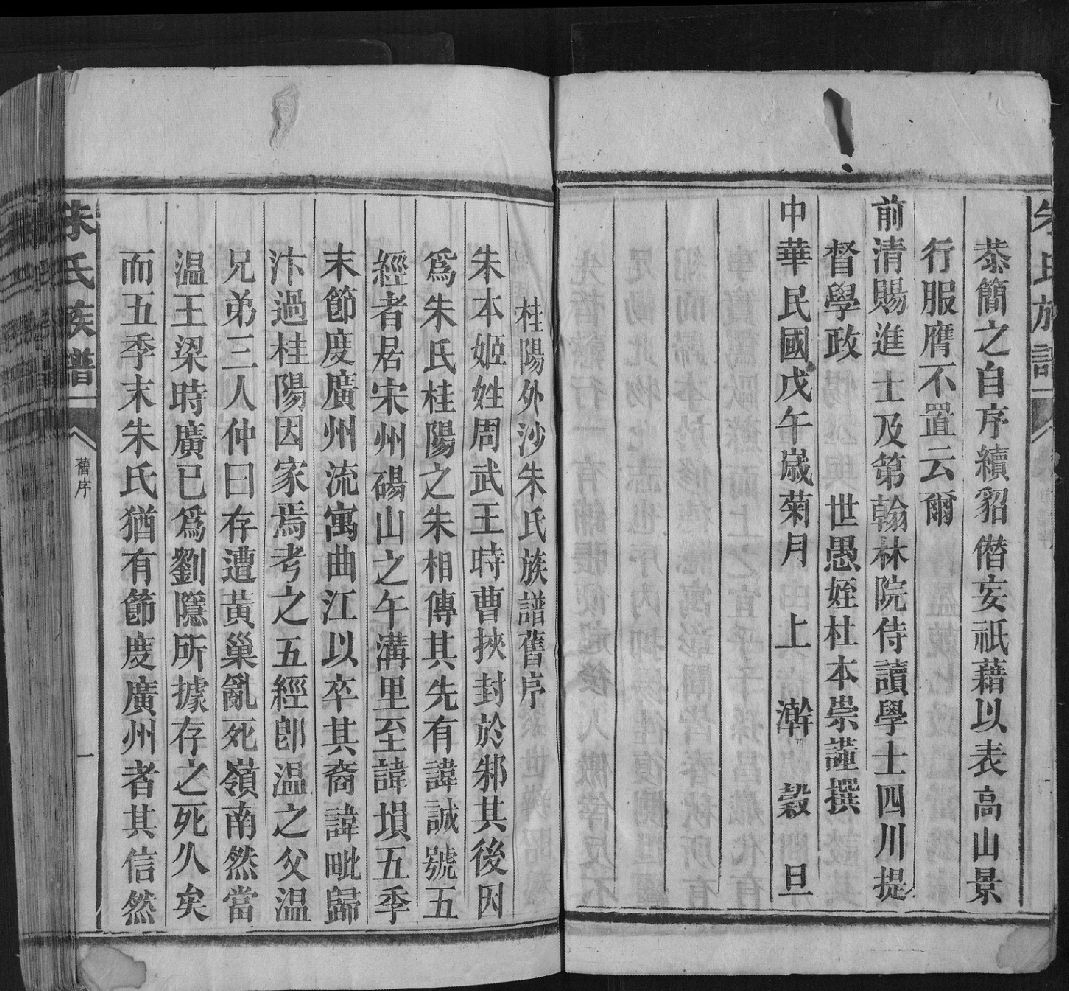 朱氏族譜
恭簡之自序續貂僭妄祇藉以表高山景
行服膺不置云爾
前清賜進士及第翰林院侍讀學士四川提
督學政　世愚姪杜本崇謹撰
中華民國戊午嵗菊月上澣穀旦
桂陽外沙朱氏族譜舊序
朱本姬姓周武王時曹挾封於邾其後因
爲朱氏桂陽之朱相傳其先有諱誠號五
經者居宋州碭山之午溝里至諱塤五季
末節度廣州流寓曲江以卒其裔諱毗歸
汴過桂陽因家焉考之五經卽温之父温
兄弟三人仲曰存遭黃巢亂死嶺南然當
温王梁時廣已爲劉隱所據存之死久矣
而五季末朱氏猶有節度廣州者其信然
朱氏族譜
舊序
一